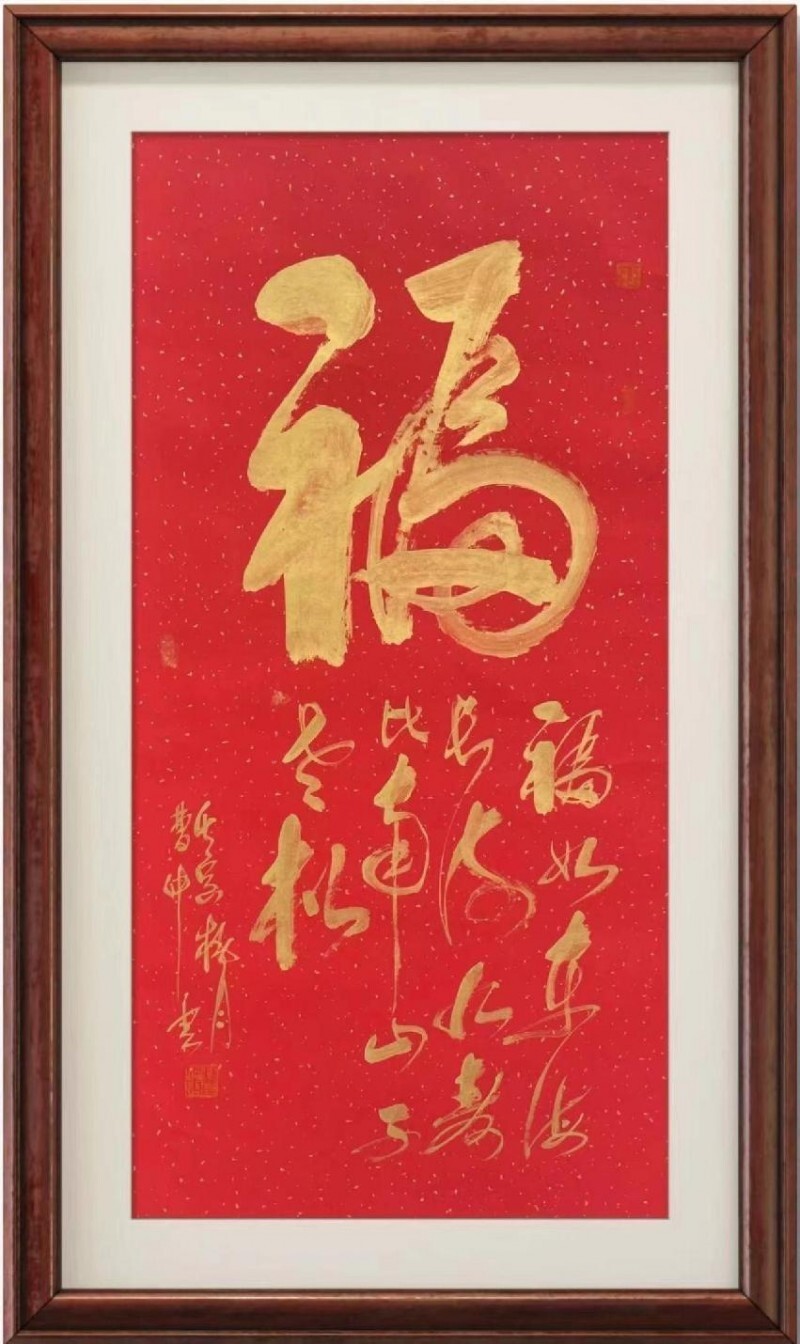 福
福如东海
长流水寿
比南山不
老松
曹中书